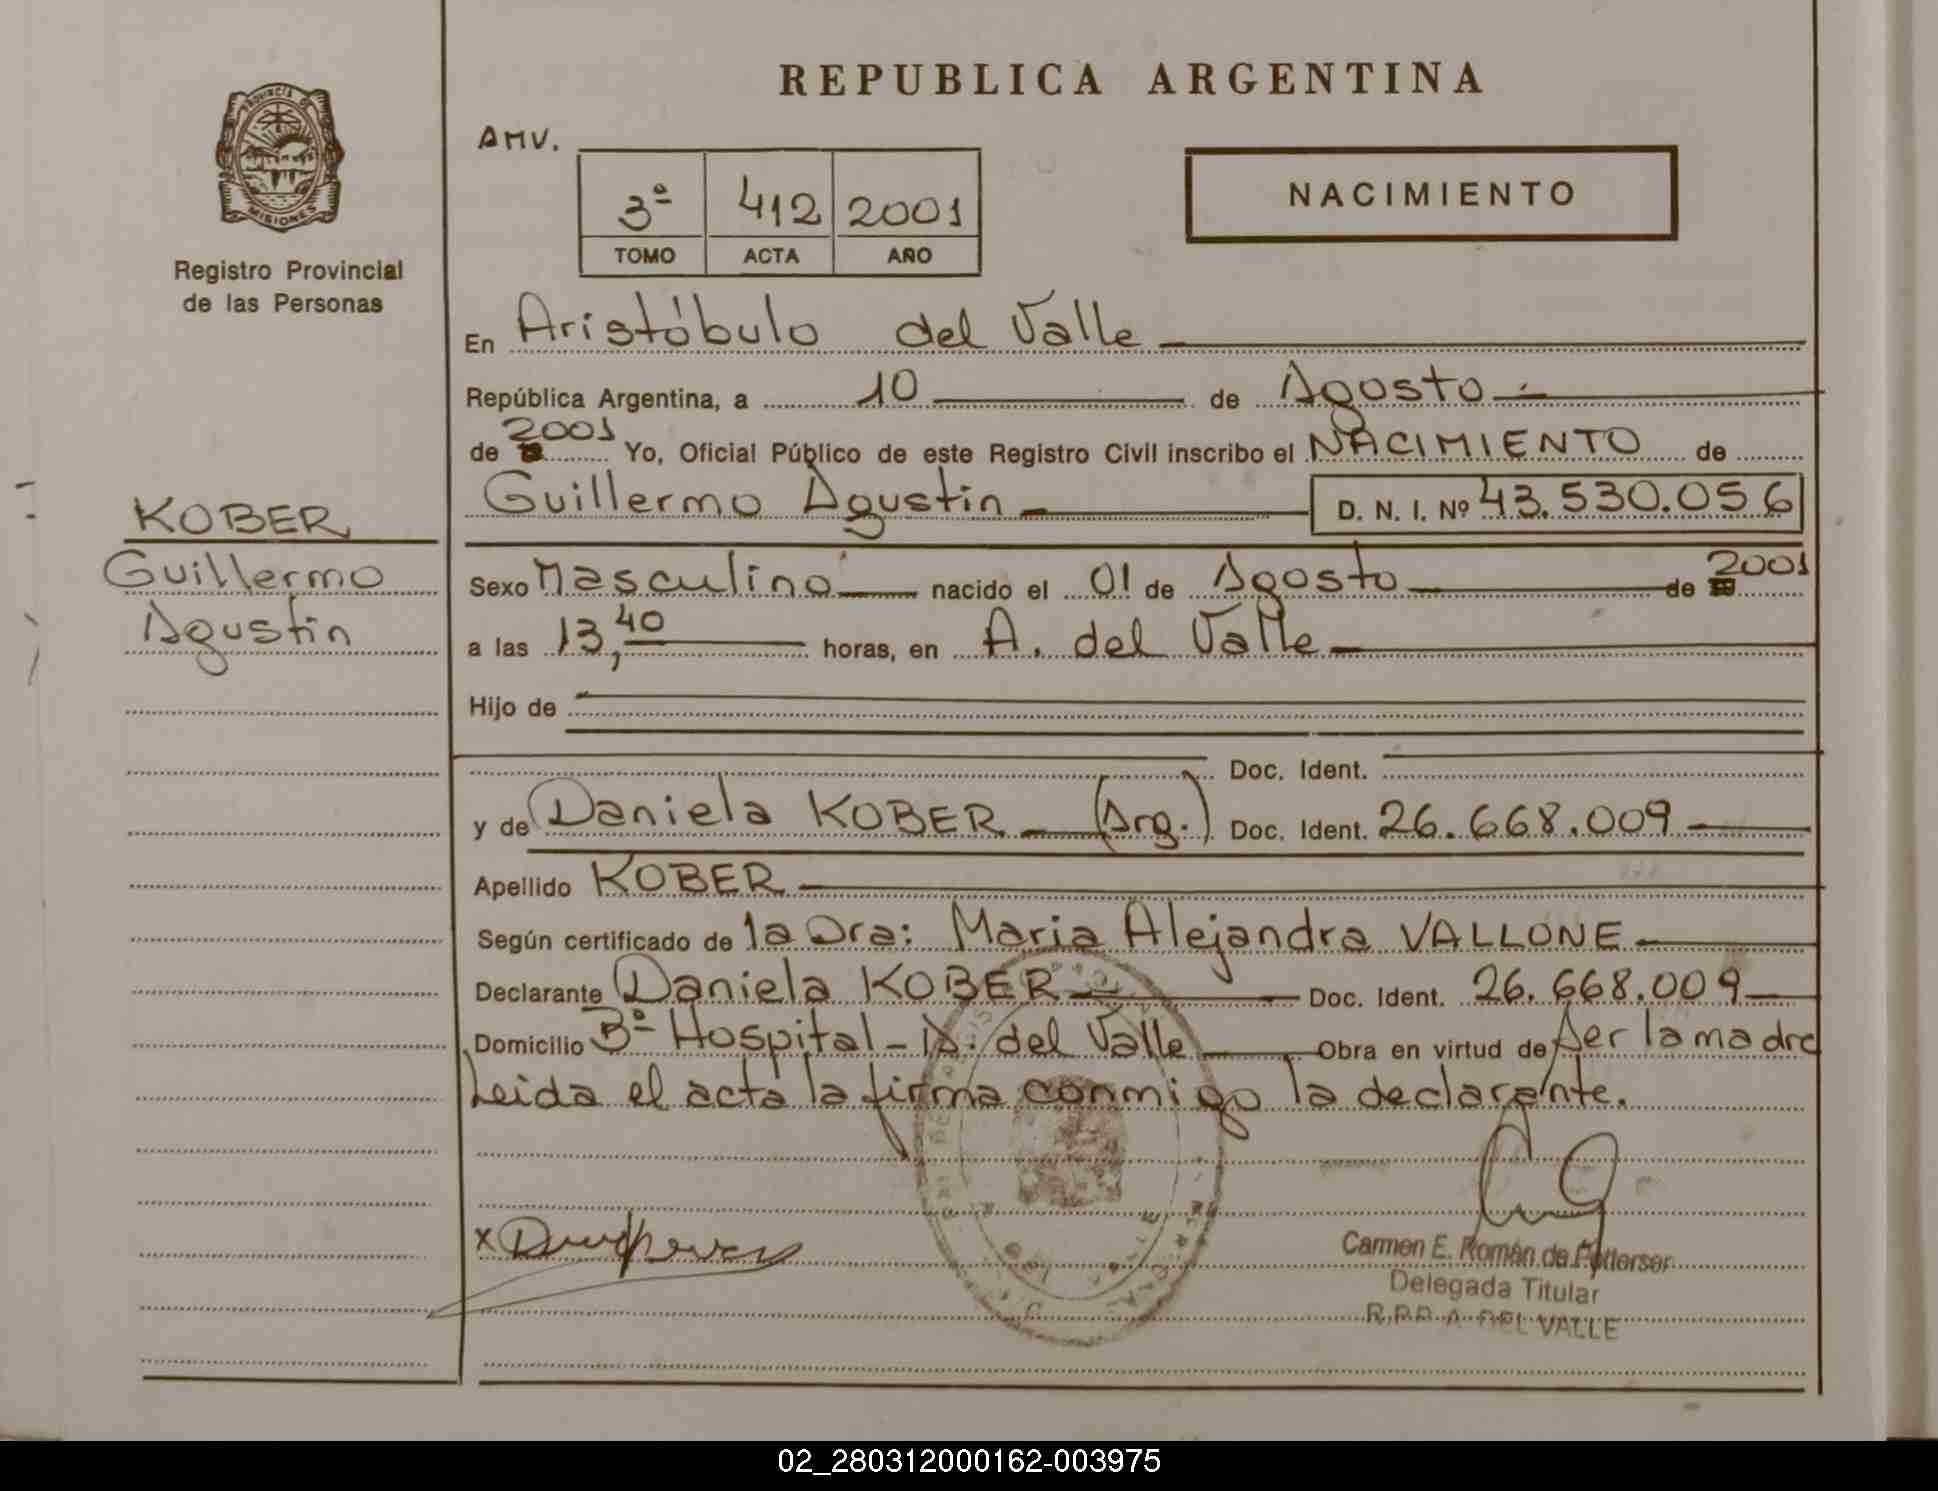 REPUBLICA ARGENTINA
PROVINCIA DE
MISIONES
Registro Provincial
de las Personas
AMV.
3º 412 2001
TOMO ACTA AÑO
NACIMIENTO
En Aristóbulo del Valle
República Argentina, a 10 de Agosto
de 2001 Yo, Oficial Público de este Registro Civil inscribo el NACIMIENTO de
Guillermo Agustin D. N. I. Nº 43.530.056
KOBER
Guillermo
Agustin
Sexo Masculino nacido el 01 de Agosto de 2001
a las 13,40 horas, en A. del Valle
Hijo de
Doc. Ident.
y de Daniela KOBER (Arg.) Doc. Ident. 26.668.009
Apellido KOBER
Según certificado de la Dra: Maria Alejandra VALLONE
Declarante Daniela KOBER Doc. Ident. 26.668.009
Domicilio Bº Hospital - A. del Valle Obra en virtud de Ser la madre
Leida el acta la firma conmigo la declarante.
x
Carmen E. Román de
Delegada Titular
R.P.P. A. DEL VALLE
02_280312000162-003975